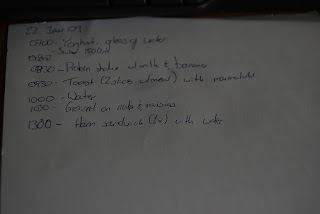 22 Jan 09
0700 - Yoghurt, glass of water
- Swim 1500m
0830 - Protein shake w/milk & banana
0930 - Toast (2 slices w/meal) with marmalade
1000 - Water
- on nuts & raisins
1300 - Ham sandwich (1x) with water